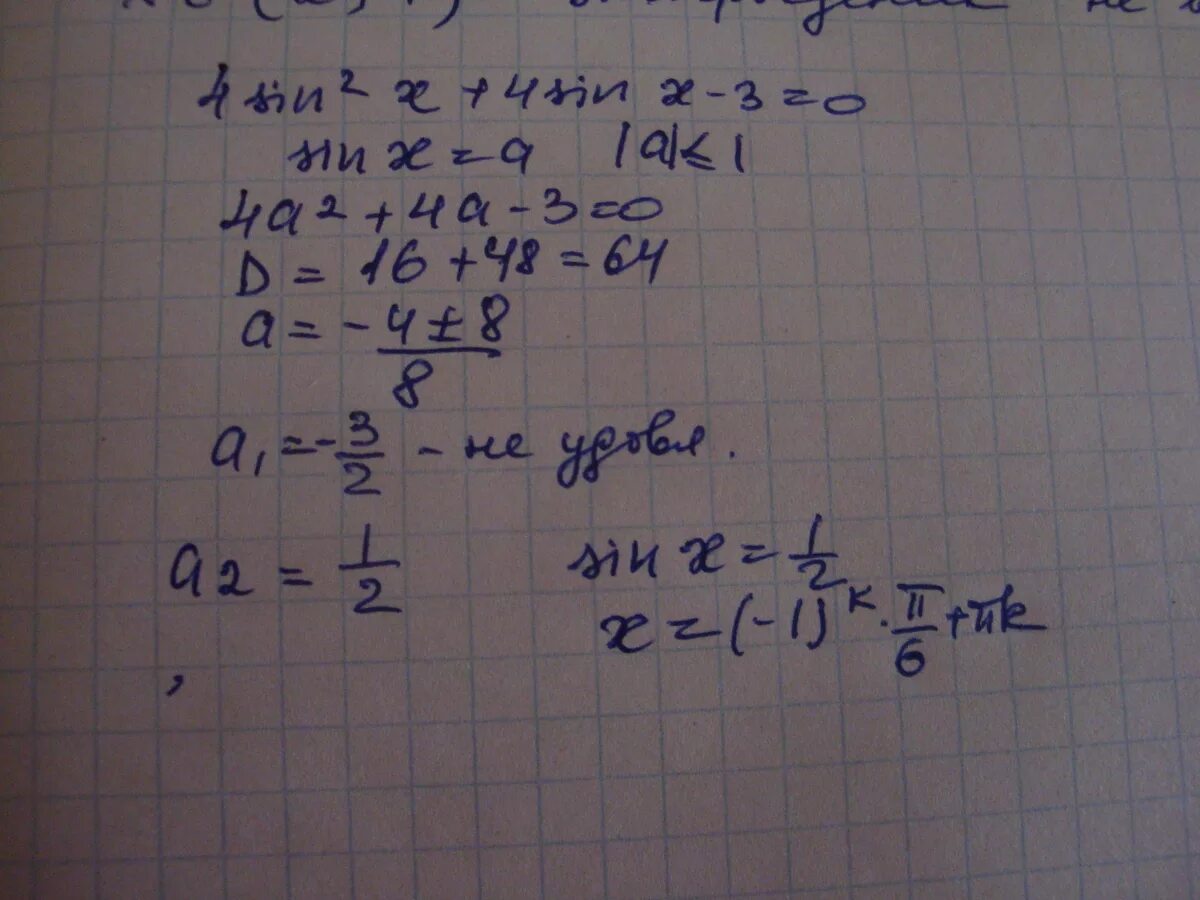 4 sin² x + 4 sin x - 3 = 0
sin x = a |a| ≤ 1
4a² + 4a - 3 = 0
D = 16 + 48 = 64
a = -4 ± 8
8
a₁ = -3/2 - не удовл.
a2 = 1/2 sin x = 1/2
x = (-1)ᵏ · π/6 + πk